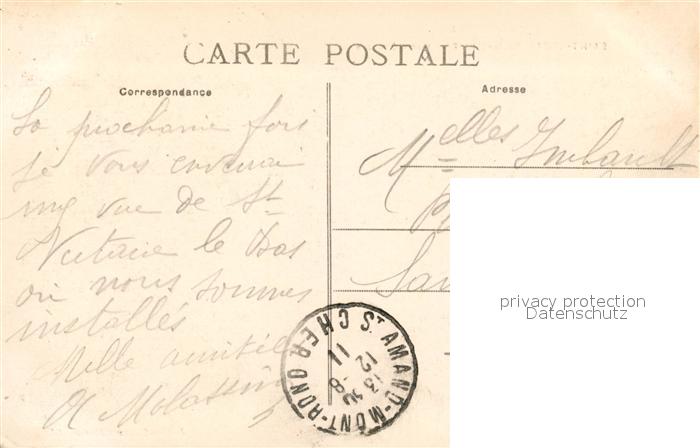 CARTE POSTALE
Correspondance
Adresse
La prochaine fois
je vous enverrai
une vue de St
Nectaire le Bas
où nous sommes
installés
Mille amitiés
Melles Imbault
privacy protection
Datenschutz
ST AMAND-MONT-ROND
CHER
11
12 -8
13